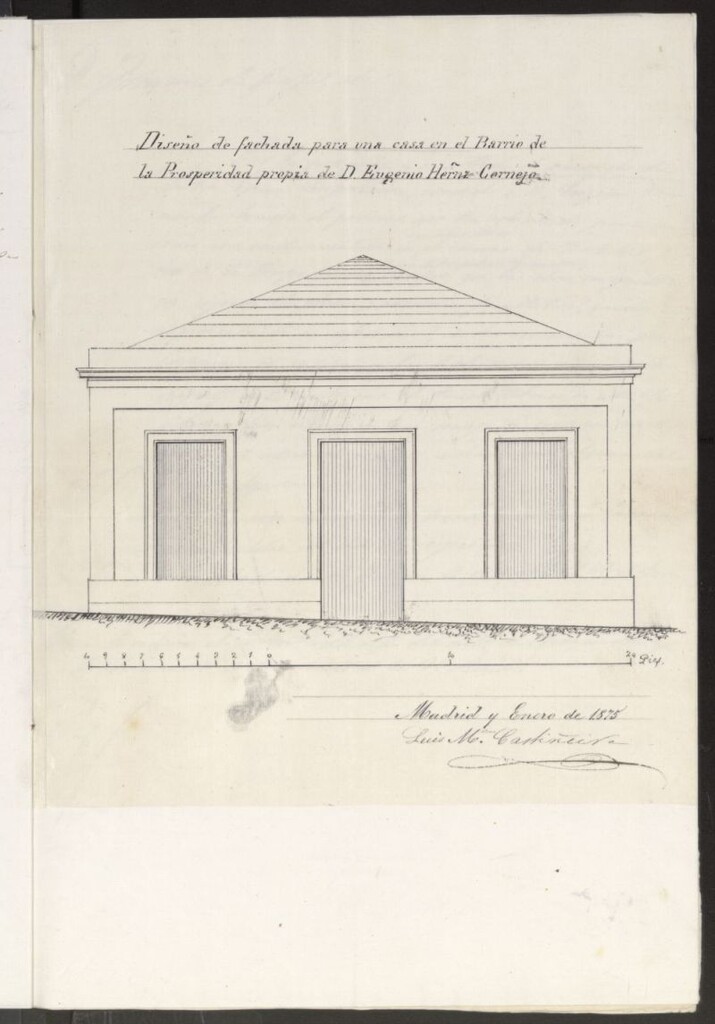 Diseño de fachada para una casa en el Barrio de
la Prosperidad propia de D. Eugenio Hern̄z Cornejo.
10 9 8 7 6 5 4 3 2 1 0 10 20 Pies.
Madrid y Enero de 1875
Luis Mª. Castiñeira